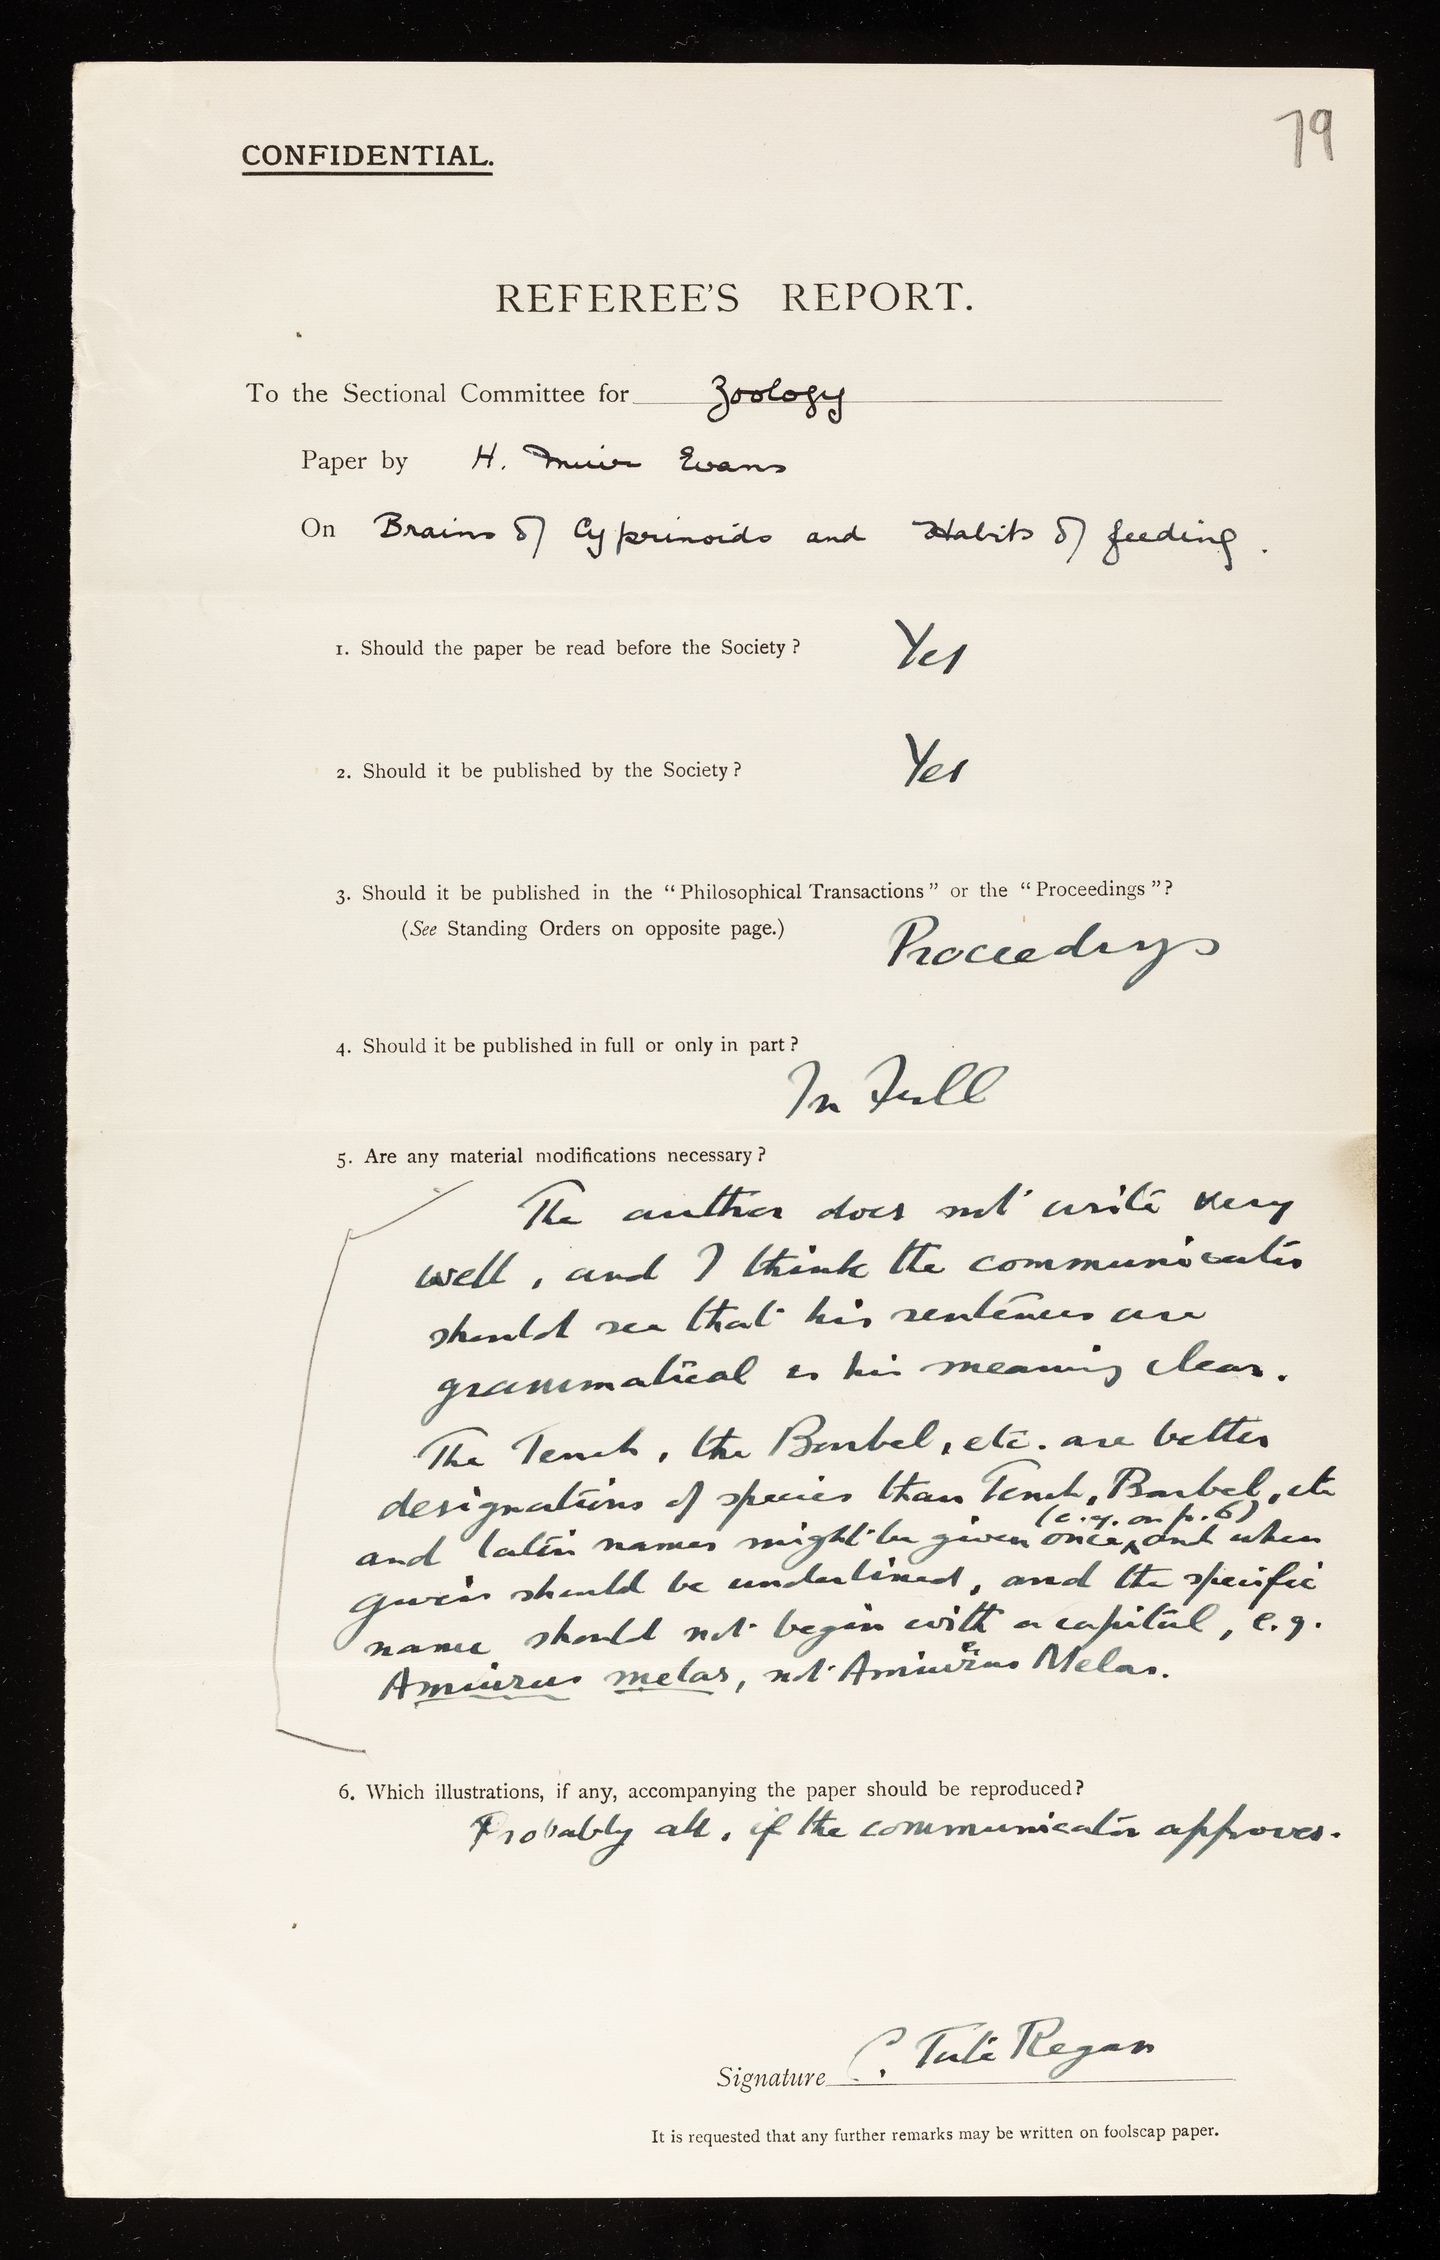 79
CONFIDENTIAL.
REFEREE'S REPORT.
To the Sectional Committee for Zoology
Paper by H. Muir Evans
On Brains of Cyprinoids and Habits of feeding.
1. Should the paper be read before the Society? Yes
2. Should it be published by the Society? Yes
3. Should it be published in the "Philosophical Transactions" or the "Proceedings"?
(See Standing Orders on opposite page.)
Proceedings
4. Should it be published in full or only in part?
In Full
5. Are any material modifications necessary?
The author does not write very
well, and I think the communicator
should see that his sentences are
grammatical & his meaning clear.
The Tench, the Barbel, etc. are better
designations of species than Tench, Barbel, etc
(e.g. on p. 6)
and latin names might be given once, and when
given should be underlined, and the specific
name should not begin with a capital, e.g.
Amiurus melas, not Amiurus Melas.
6. Which illustrations, if any, accompanying the paper should be reproduced?
Probably all, if the communicator approves.
Signature C. Tate Regan
It is requested that any further remarks may be written on foolscap paper.